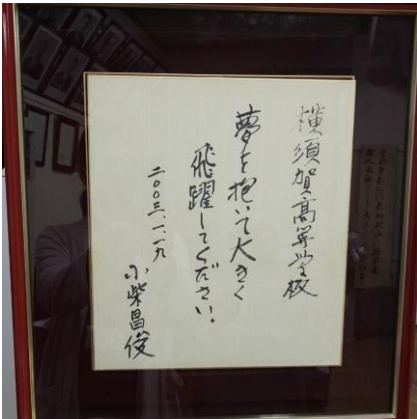 横須賀高等学校
夢を抱いて大きく
飛躍してください。
二〇〇三、一、一九
小柴昌俊